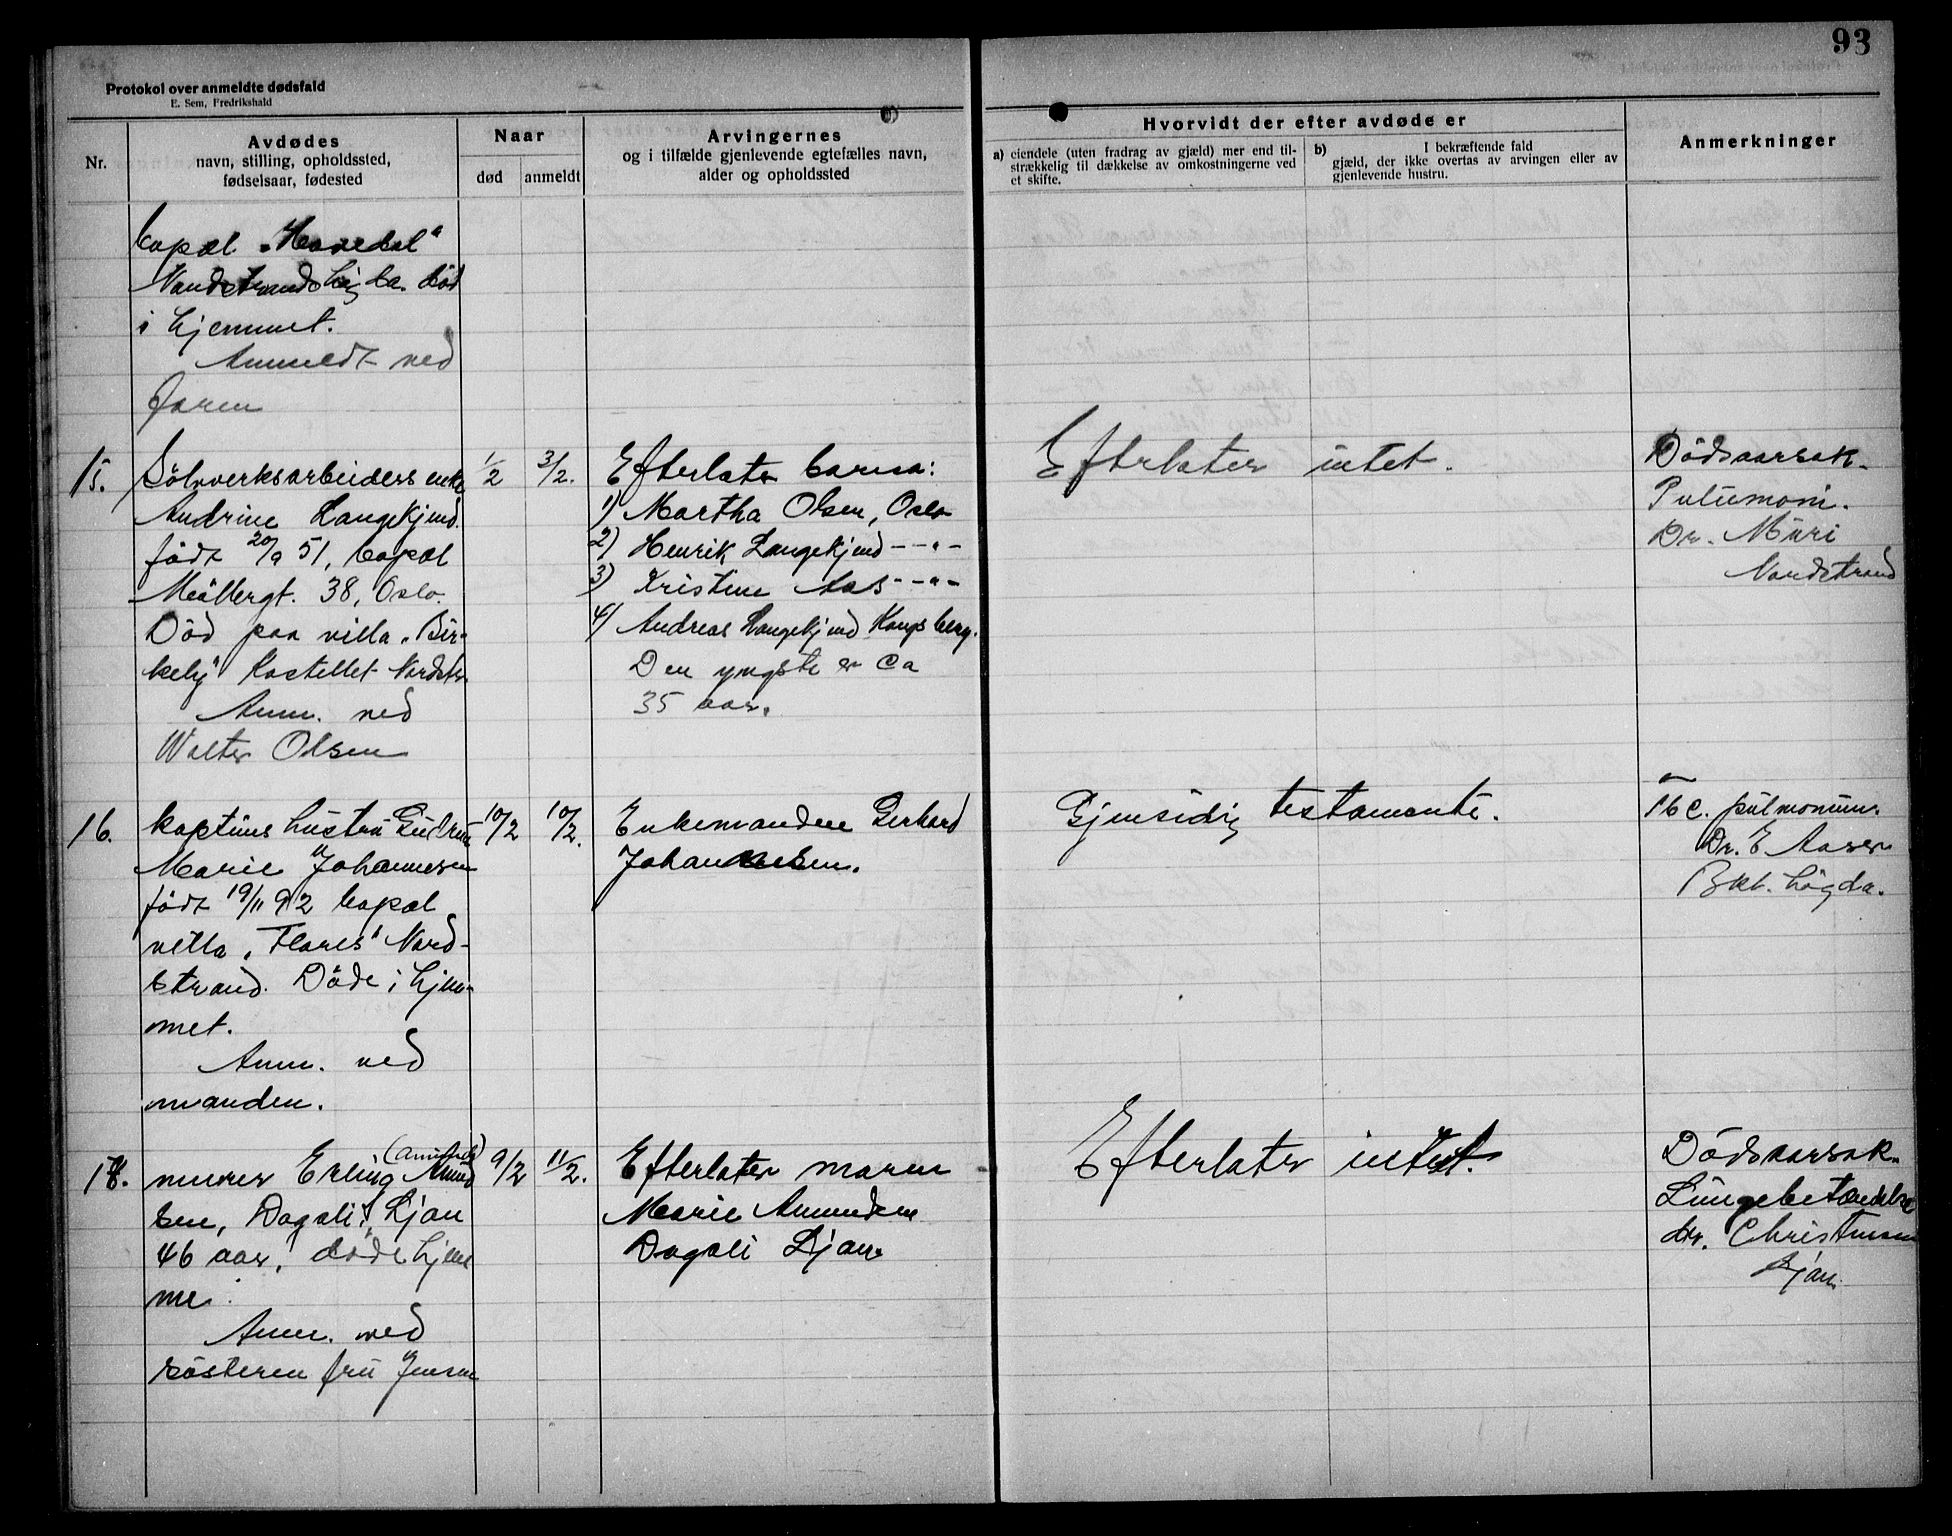 93
Protokol over anmeldte dødsfald
E. Sem, Fredrikshald
Nr.
Avdødes
navn, stilling, opholdssted,
fødselsaar, fødested
Naar
død
anmeldt
Arvingernes
og i tilfælde gjenlevende egtefælles navn,
alder og opholdssted
Hvorvidt der efter avdøde er
a) eiendele (uten fradrag av gjæld) mer end til-
strækkelig til dækkelse av omkostningerne ved
et skifte.
b) I bekræftende fald
gjæld, der ikke overtas av arvingen eller av
gjenlevende hustru.
Anmerkninger
bopæl
død
i hjemmet.
Anmeldt ved
15.
Sölvverksarbeiders enke
Andrine Langekjend.
født 20/9 51, bopæl
Möllergt. 38, Oslo.
Död paa villa "Bir-
kely" Kastellet Nordstr.
Anm. ved
Walter Olsen
1/2
3/2.
Efterlater barna:
1) Martha Olsen, Oslo
2) Henrik Langekjend -"-
3) Kristine Aas -"-
4) Andreas Langekjend Kongsberg.
Den yngste er ca
35 aar.
Efterlater intet.
Dödsaarsak.
Dr. Müri
Nordstrand
16.
kapteins hustru Gudrun
Marie Johannesen
født 19/11 92 bopæl
villa "Flores" Nord-
strand. Døde i hjem-
met.
Anm. ved
manden.
10/2
10/2.
Enkemanden Gerhard
Johannesen.
Gjensidig testamente.
Tbc. pulmonum.
Dr. E. Aaser
Bkl. högda.
18.
murer Erling Amund
sen, Dagali, Ljan
46 aar, døde hjem
me.
Anm. ved
søsteren fru Jensen
9/2
11/2.
Efterlater moren
Marie Amundsen
Dagali Ljan
Efterlater intet.
Dödsaarsak.
Lungebetændelse
dr. Christensen
Ljan.